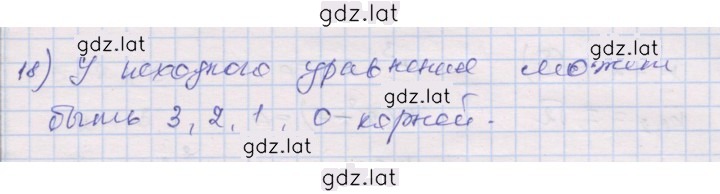 gdz.lat
gdz.lat
gdz.lat
18) У исходного уравнения может
gdz.lat
быть 3, 2, 1, 0-корней.
gdz.lat
gdz.lat